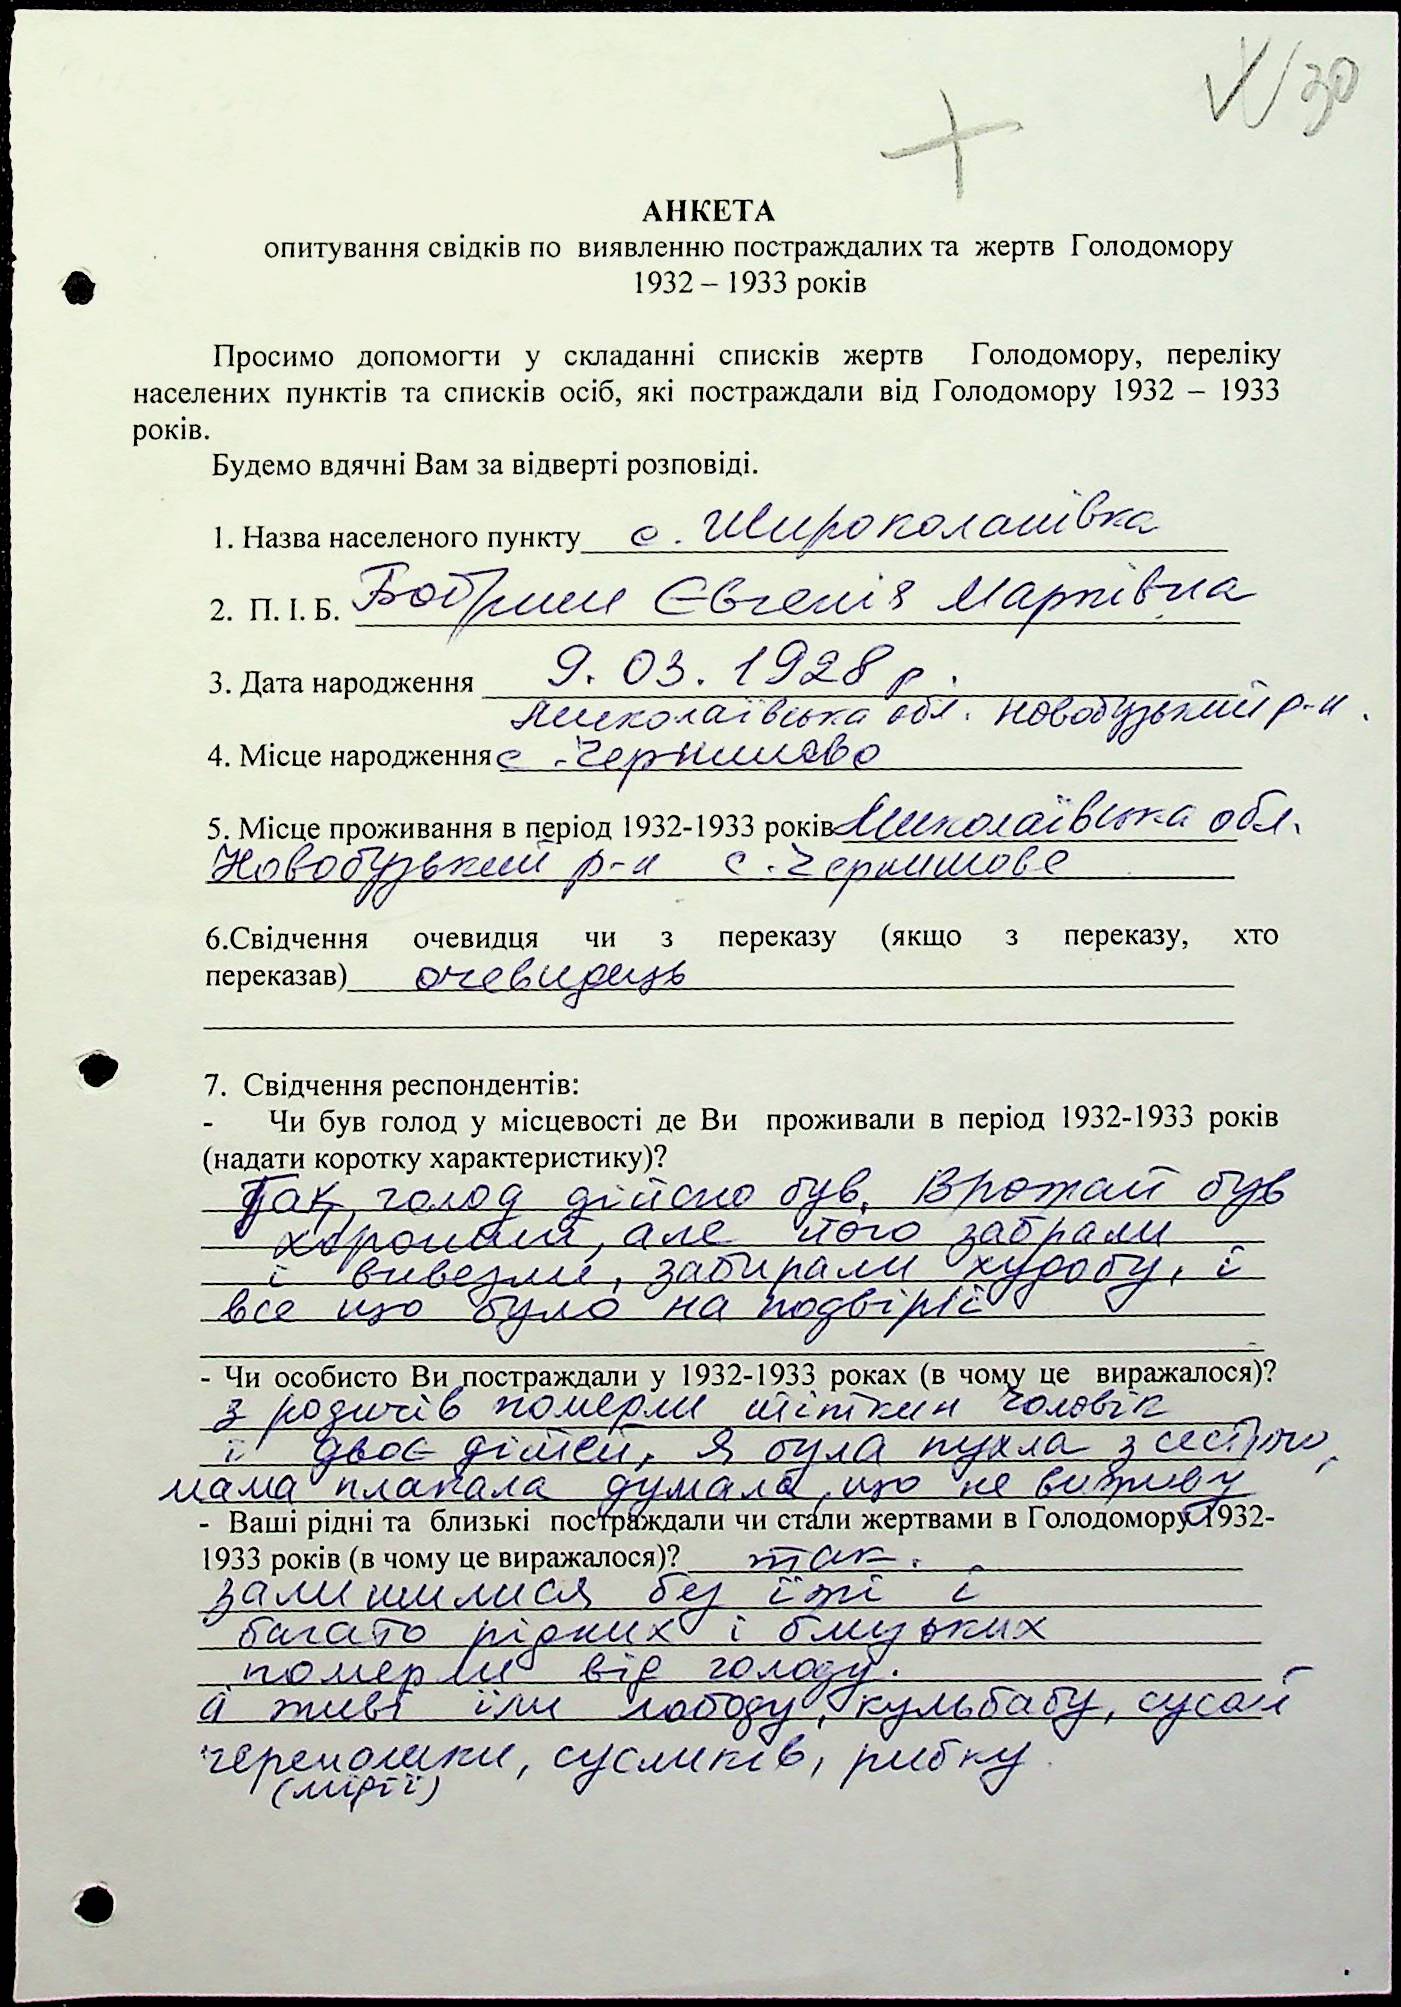 30
АНКЕТА
опитування свідків по виявленню постраждалих та жертв Голодомору
1932 – 1933 років
Просимо допомогти у складанні списків жертв Голодомору, переліку
населених пунктів та списків осіб, які постраждали від Голодомору 1932 – 1933
років.
Будемо вдячні Вам за відверті розповіді.
1. Назва населеного пункту с. Широколанівка
2. П. І. Б. Євгенія Марківна
3. Дата народження 9.03.1928 р.
Миколаївська обл. Новобузький р-н.
4. Місце народження с.
5. Місце проживання в період 1932-1933 років Миколаївська обл.
Новобузький р-н с.
6.Свідчення очевидця чи з переказу (якщо з переказу, хто
переказав) очевидець
7. Свідчення респондентів:
- Чи був голод у місцевості де Ви проживали в період 1932-1933 років
(надати коротку характеристику)?
Так, голод дійсно був. Врожай був
хороший, але його забрали
і вивезли, забирали худобу, і
все що було на подвірї
- Чи особисто Ви постраждали у 1932-1933 роках (в чому це виражалося)?
з родичів померли тіткин чоловік
і двоє дітей, я була пухла з сестрою,
мама плакала думала, що не виживу
- Ваші рідні та близькі постраждали чи стали жертвами в Голодомору 1932-
1933 років (в чому це виражалося)? так.
залишилися без їжі і
багато рідних і близьких
померли від голоду.
а живі їли лободу, кульбабу,
черепашки, сусликів, рибку
(мідії)